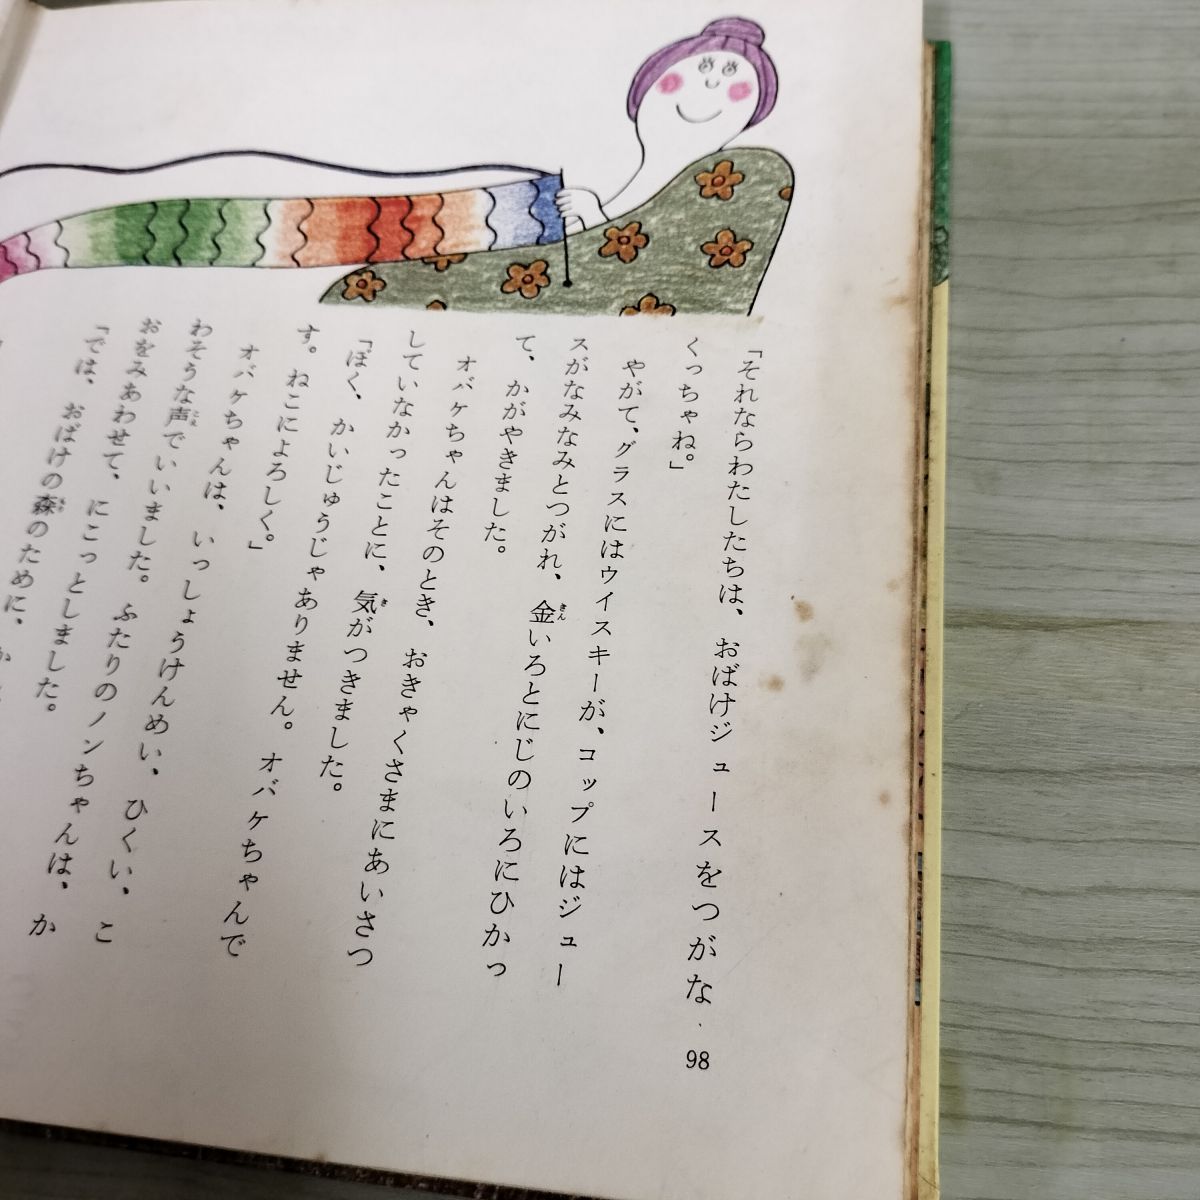 「それならわたしたちは、おばけジュースをつがな
くっちゃね。」
やがて、グラスにはウイスキーが、コップにはジュー
スがなみなみとつがれ、金いろとにじのいろにひかっ
て、かがやきました。
オバケちゃんはそのとき、おきゃくさまにあいさつ
していなかったことに、気がつきました。
「ぼく、かいじゅうじゃありません。オバケちゃんで
す。ねこによろしく。」
オバケちゃんは、いっしょうけんめい、ひくい、こ
わそうな声でいいました。ふたりのノンちゃんは、か
おをみあわせて、にこっとしました。
「では、おばけの森のために、
98